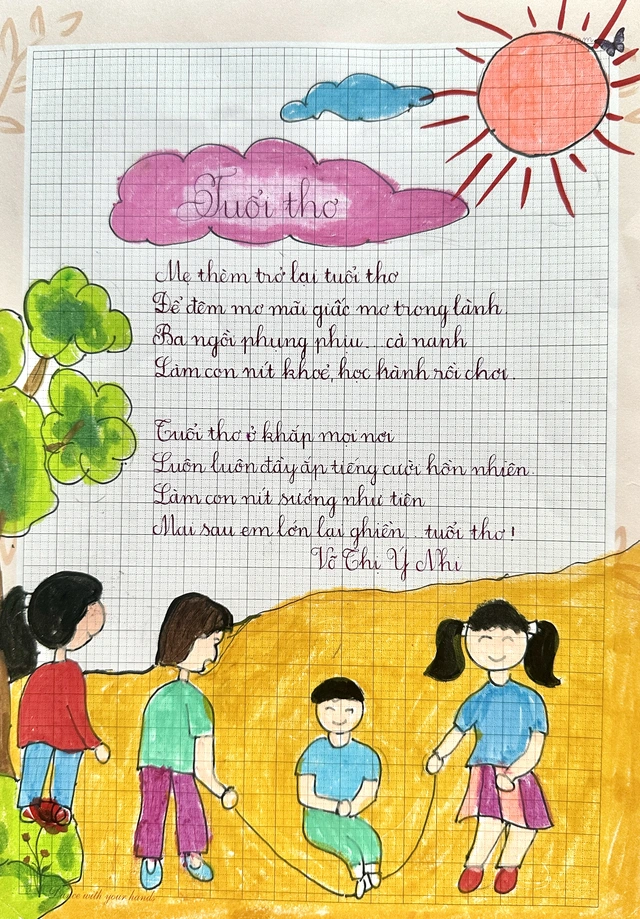 Tuổi thơ
Mẹ thèm trở lại tuổi thơ
Để đêm mơ mãi giấc mơ trong lành.
Ba ngồi phụng phịu...cà nanh
Làm con nít khoẻ, học hành rồi chơi.
Tuổi thơ ở khắp mọi nơi
Luôn luôn đầy ắp tiếng cười hồn nhiên.
Làm con nít sướng như tiên
Mai sau em lớn lại ghiền...tuổi thơ!
Võ Thị Ý Nhi
with your hands